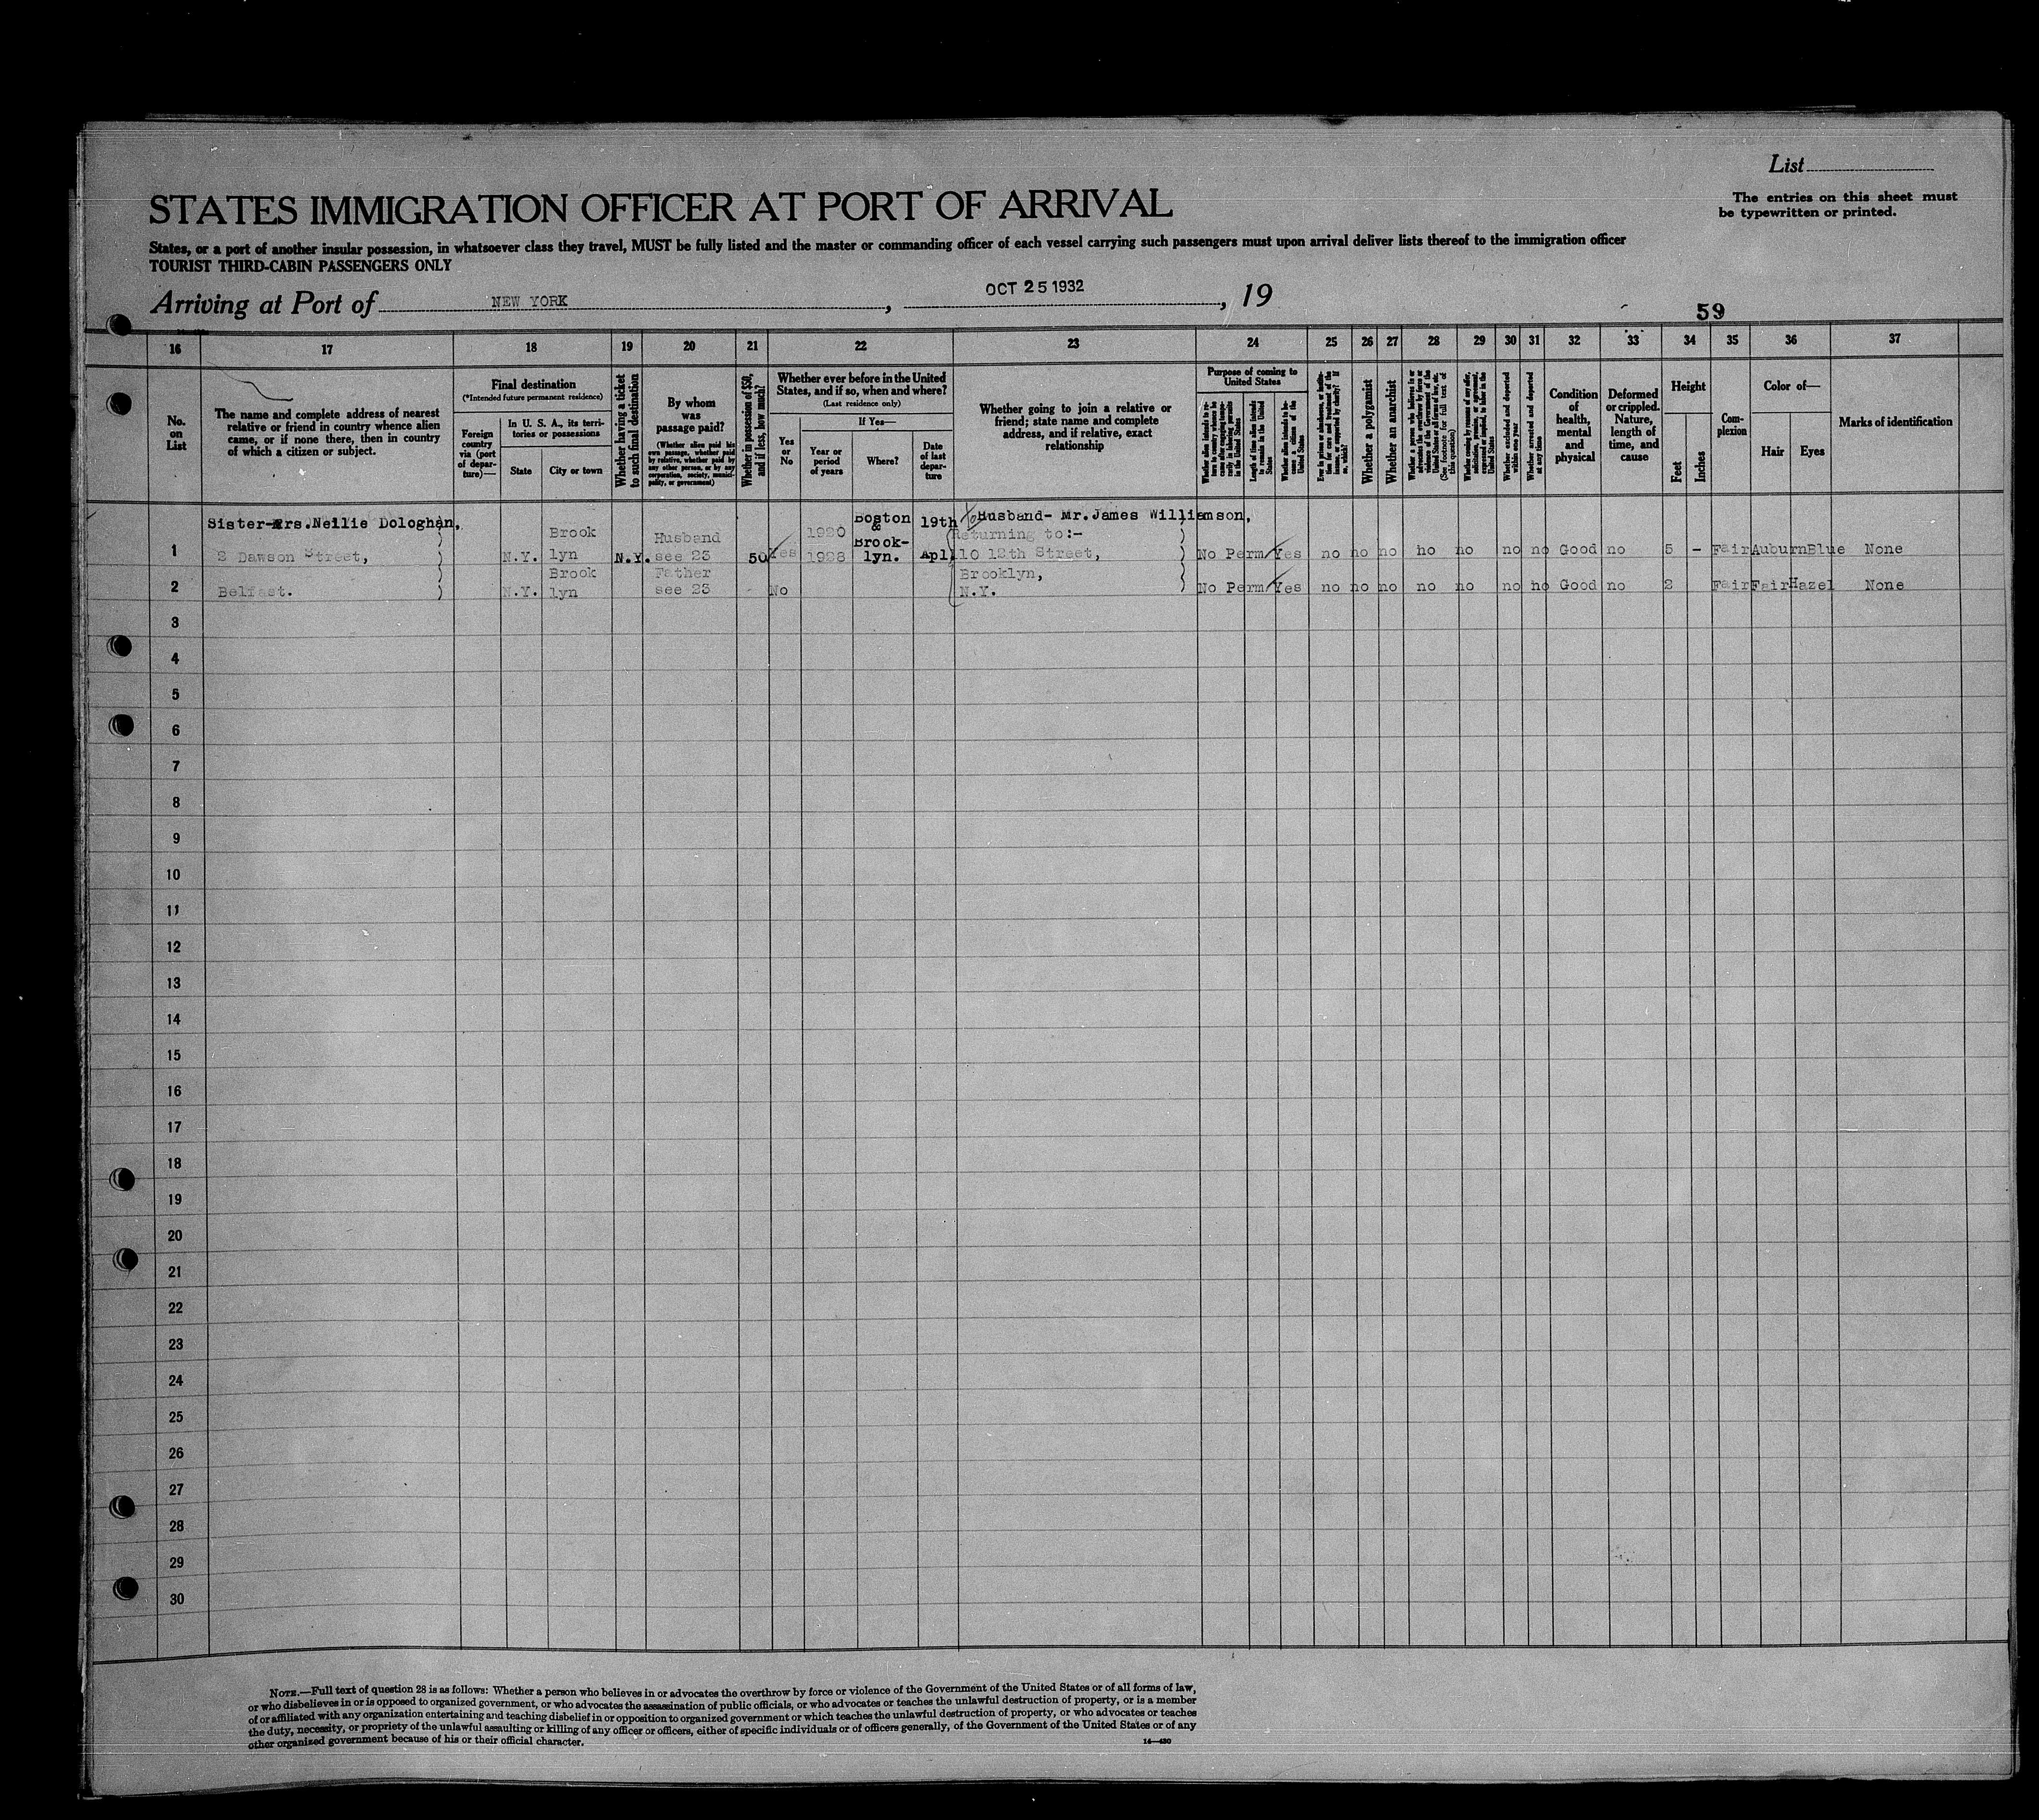 List
STATES IMMIGRATION OFFICER AT PORT OF ARRIVAL
The entries on this sheet must
be typewritten or printed.
States, or a port of another insular possession, in whatsoever class they travel, MUST be fully listed and the master or commanding officer of each vessel carrying such passengers must upon arrival deliver lists thereof to the immigration officer
TOURIST THIRD-CABIN PASSENGERS ONLY
Arriving at Port of NEW YORK, OCT 25 1932, 19
59
16 17 18 19 20 21 22 23 24 25 26 27 28 29 30 31 32 33 34 35 36 37
No.
on
List
The name and complete address of nearest
relative or friend in country whence alien
came, or if none there, then in country
of which a citizen or subject.
Final destination
(*Intended future permanent residence)
Foreign
country
via (port
of depar-
ture)—
In U. S. A., its terri-
tories or possessions
State
City or town
Whether having a ticket
to such final destination
By whom
was
passage paid?
(Whether alien paid his
own passage, whether paid
by relative, whether paid by
any other person, or by any
corporation, society, munici-
pality, or government)
Whether in possession of $50,
and if less, how much?
Whether ever before in the United
States, and if so, when and where?
(Last residence only)
Yes
or
No
If Yes—
Year or
period
of years
Where?
Date
of last
depar-
ture
Whether going to join a relative or
friend; state name and complete
address, and if relative, exact
relationship
Purpose of coming to
United States
Whether alien intends to re-
turn to country whence he
came after engaging tempo-
rarily in laboring pursuits
in the United States
Length of time alien intends
to remain in the United
States
Whether alien intends to be-
come a citizen of the
United States
Ever in prison or almshouse, or institu-
tion for care and treatment of the
insane, or supported by charity? If
so, which?
Whether a polygamist
Whether an anarchist
Whether a person who believes in or
advocates the overthrow by force or
violence of the Government of the
United States or all forms of law, etc.
(See footnote for full text of
this question)
Whether coming by reasons of any offer,
solicitation, promise, or agreement,
expressed or implied, to labor in the
United States
Whether excluded and deported
within one year
Whether arrested and deported
at any time
Condition
of
health,
mental
and
physical
Deformed
or crippled.
Nature,
length of
time, and
cause
Height
Feet
Inches
Com-
plexion
Color of—
Hair
Eyes
Marks of identification
Sister-Mrs.Nellie Dologhan,
2 Dawson Street,
Belfast.
1 N.Y. Brook
lyn N.Y. Husband
see 23 50 Yes 1920
1928 Boston
&
Brook-
lyn. 19th
Apl. to Husband- Mr.James Williamson,
Returning to:-
110 12th Street,
Brooklyn,
N.Y.
No Perm Yes no no no no no no no Good no 5 - Fair Auburn Blue None
2 N.Y. Brook
lyn Father
see 23 - No
No Perm Yes no no no no no no no Good no 2 Fair Fair Hazel None
3
4
5
6
7
8
9
10
11
12
13
14
15
16
17
18
19
20
21
22
23
24
25
26
27
28
29
30
NOTE.—Full text of question 28 is as follows: Whether a person who believes in or advocates the overthrow by force or violence of the Government of the United States or of all forms of law,
or who disbelieves in or is opposed to organized government, or who advocates the assassination of public officials, or who advocates or teaches the unlawful destruction of property, or is a member
of or affiliated with any organization entertaining and teaching disbelief in or opposition to organized government or which teaches the unlawful destruction of property, or who advocates or teaches
the duty, necessity, or propriety of the unlawful assaulting or killing of any officer or officers, either of specific individuals or of officers generally, of the Government of the United States or of any
other organized government because of his or their official character.
14—430